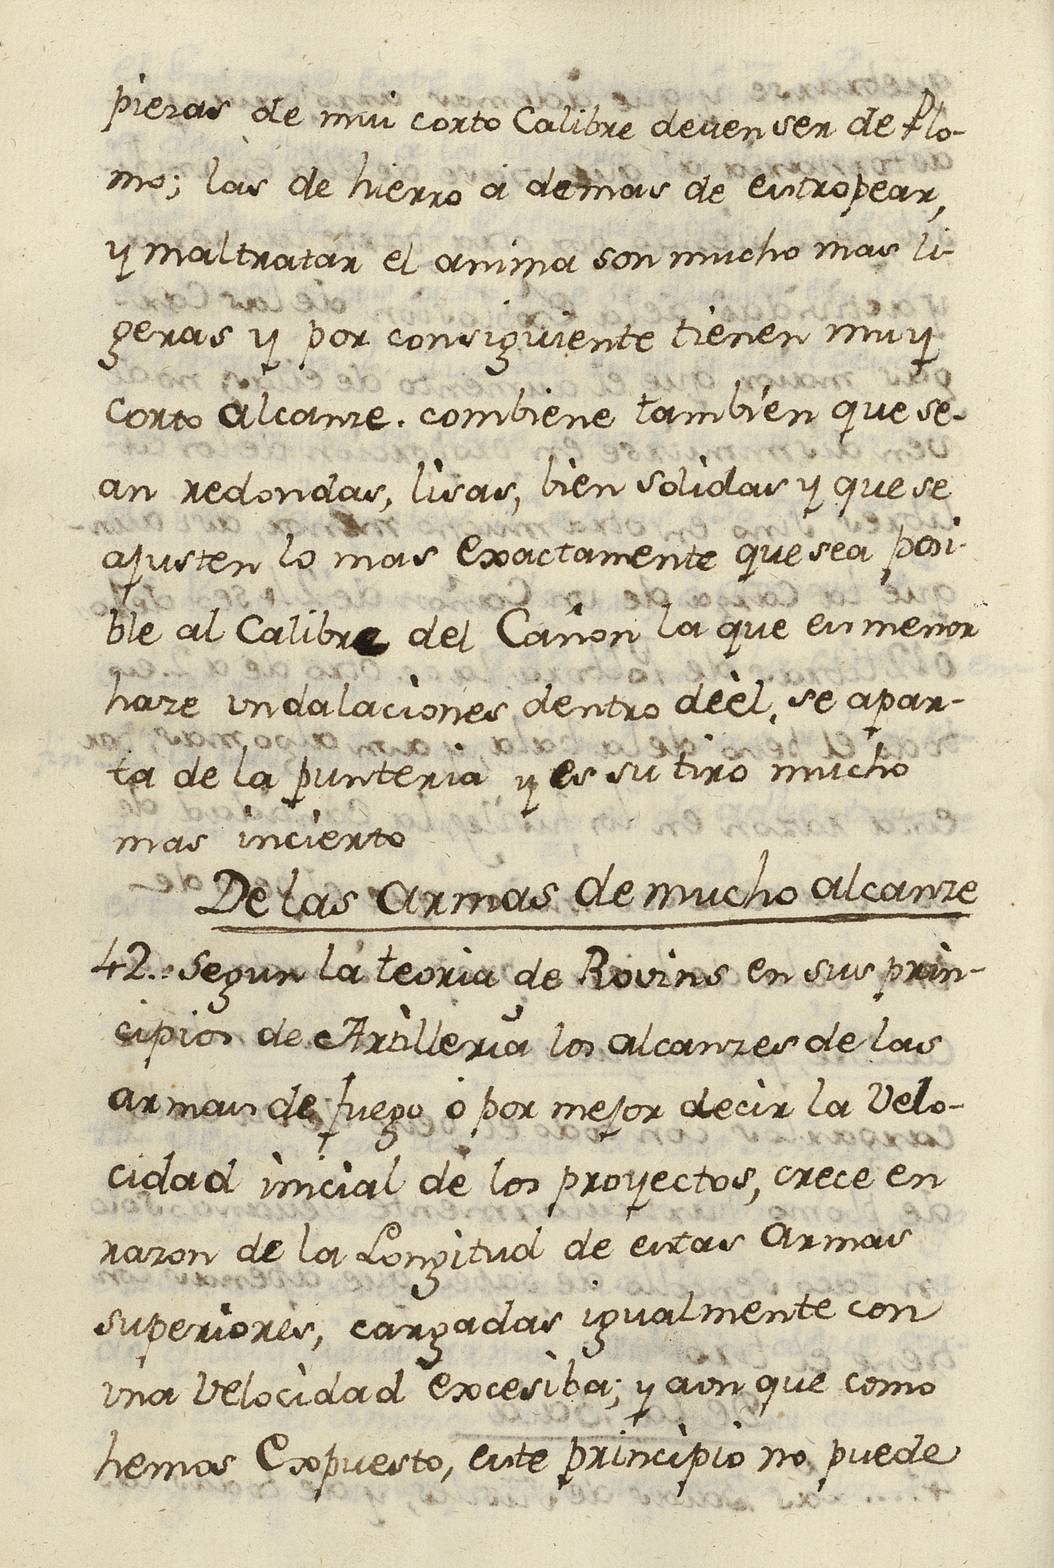 piezas de mui corto Calibre deven ser de Plo-
mo; las de hierro a demas de estropear,
y maltratar el anima son mucho mas li-
geras y por consiguiente tienen muy
corto alcanze. combiene tambien que se-
an redondas, lisas, bien solidas y que se
ajusten lo mas exactamente que sea posi-
ble al Calibre del Cañon la que es menor
haze undalaciones dentro deèl, se apar-
ta de la punteria y es su tiro mucho
mas incierto
De las armas de mucho alcanze
42.. Segun la teoria de Rovins en sus prin-
cipios de Artilleria los alcanzes de las
armas de fuego ò por mejor decir la Velo-
cidad inicial de los proyectos, crece en
razon de la Longitud de estas armas
superiores, cargadas igualmente con
una Velocidad excesiba; y aun que como
hemos Expuesto, este principio no puede